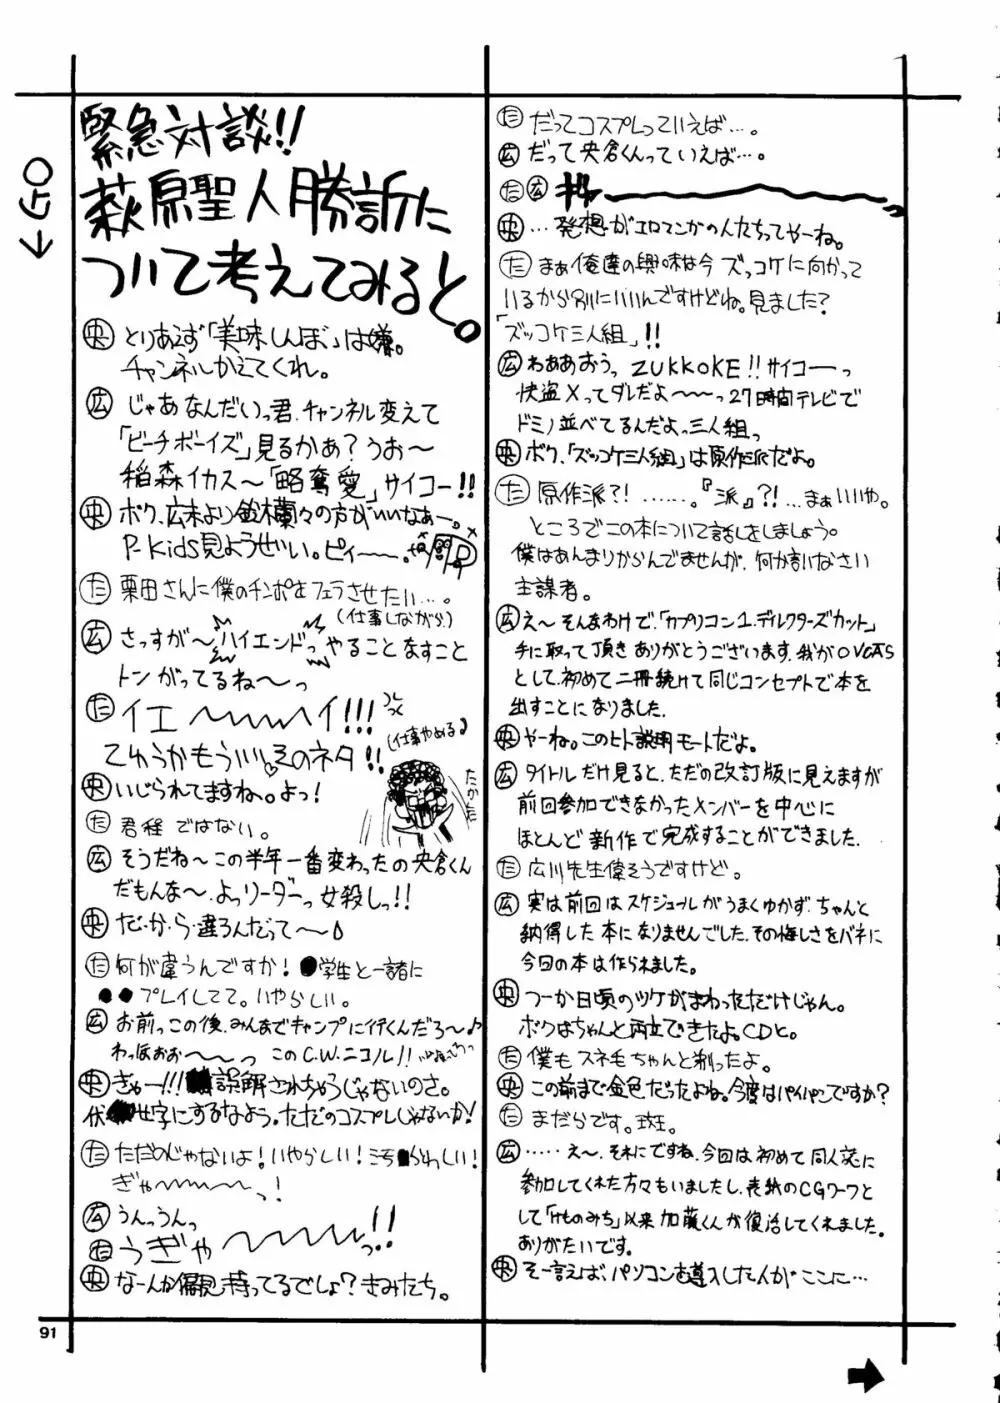 GO
緊急対談!!
萩原聖人勝訴に
ついて考えてみると。
央 とりあえず「美味しんぼ」は嫌。
チャンネルかえてくれ。
広 じゃあなんだいっ君、チャンネル変えて
「ビーチボーイズ」見るかあ?うお〜
稲森イカス〜「略奪愛」サイコー!!
央 ボク、広末より鈴木蘭々の方がいいなぁー。
P-Kids見ようぜい。ピィー〜〜。
た 栗田さんに僕のチンポをフェラさせたい…。
(仕事しながら)
広 さっすが〜ハイエンドっやることなすこと
トンがってるね〜っ
た イエ〜〜〜イ!!!
てゆうかもういいそのネタ!!
(仕事やめる♪)
央 いじられてますね。よっ!
た 君程ではない。
広 そうだね〜この半年一番変わったの央倉くん
だもんな〜。よっリーダーっ女殺しっ!!
央 だ・か・ら・違ろんだって〜♪
た 何が違うんですか!●学生と一諸に
●●プレイしてて。いやらしい。
広 お前っこの後、みんなでキャンプに行くんだろ〜♪
わっほぉぉ〜〜っ このC.W.ニコル!!
央 ぎゃー!!!誤解されちゃうじゃないのさ。
伏せ字にするなよう。ただのコスプレじゃないか!
た ただのじゃないよ!いやらしい!汚らわしい!
ぎゃ〜〜〜〜っ!
広 うんっうんっ
た うぎゃ〜〜〜〜っ!!
央 なーんか偏見持ってるでしょ?きみたち。
91
た だってコスプレっていえば…。
広 だって央倉くんっていえば…。
た 広
央 …発想がエロマンガの人たちってやーね。
た まぁ俺達の興味は今ズッコケに向かって
いるから別にいいんですけどね。見ました?
「ズッコケ三人組」!!
広 わぁあおぅ、ZUKKOKE!!サイコーっ
快盗Xってダレだよ〜〜っ27時間テレビで
ドミノ並べてるんだよっ三人組っ
央 ボク、「ズッコケ三人組」は原作派だよ。
た 原作派?!……。『派』?!…まぁいいや。
ところでこの本について話しをしましょう。
僕はあんまりからんでませんが、何か言いなさい
主謀者。
広 え〜そんなわけで、「カプリコン1.ディレクターズカット」
手に取って頂きありがとうございます。我がOVCA'S
として、初めて二冊続けて同じコンセプトで本を
出すことになりました。
央 やーね。このヒト説明モードだよ。
広 タイトルだけ見ると、ただの改訂版に見えますが
前回参加できなかったメンバーを中心に
ほとんど新作で完成することができました。
た 広川先生偉そうですけど。
広 実は前回はスケジュールがうまくゆかず、ちゃんと
納得した本になりませんでした。その悔しさをバネに
今回の本は作られました。
央 つーか日頃のツケがまわっただけじゃん。
ボクはちゃんと両立できたよ。CDと。
た 僕もスネ毛ちゃんと剃ったよ。
央 この前まで金色だったよね。今度はパイパンですか?
た まだらです。斑。
広 ……え〜、それにですね、今回は初めて同人誌に
参加してくれた方々もいましたし、表紙のCGワークと
して「けものみち」以来加藤くんが復活してくれました。
ありがたいです。
央 そー言えば、パソコンを導入した人がここに…